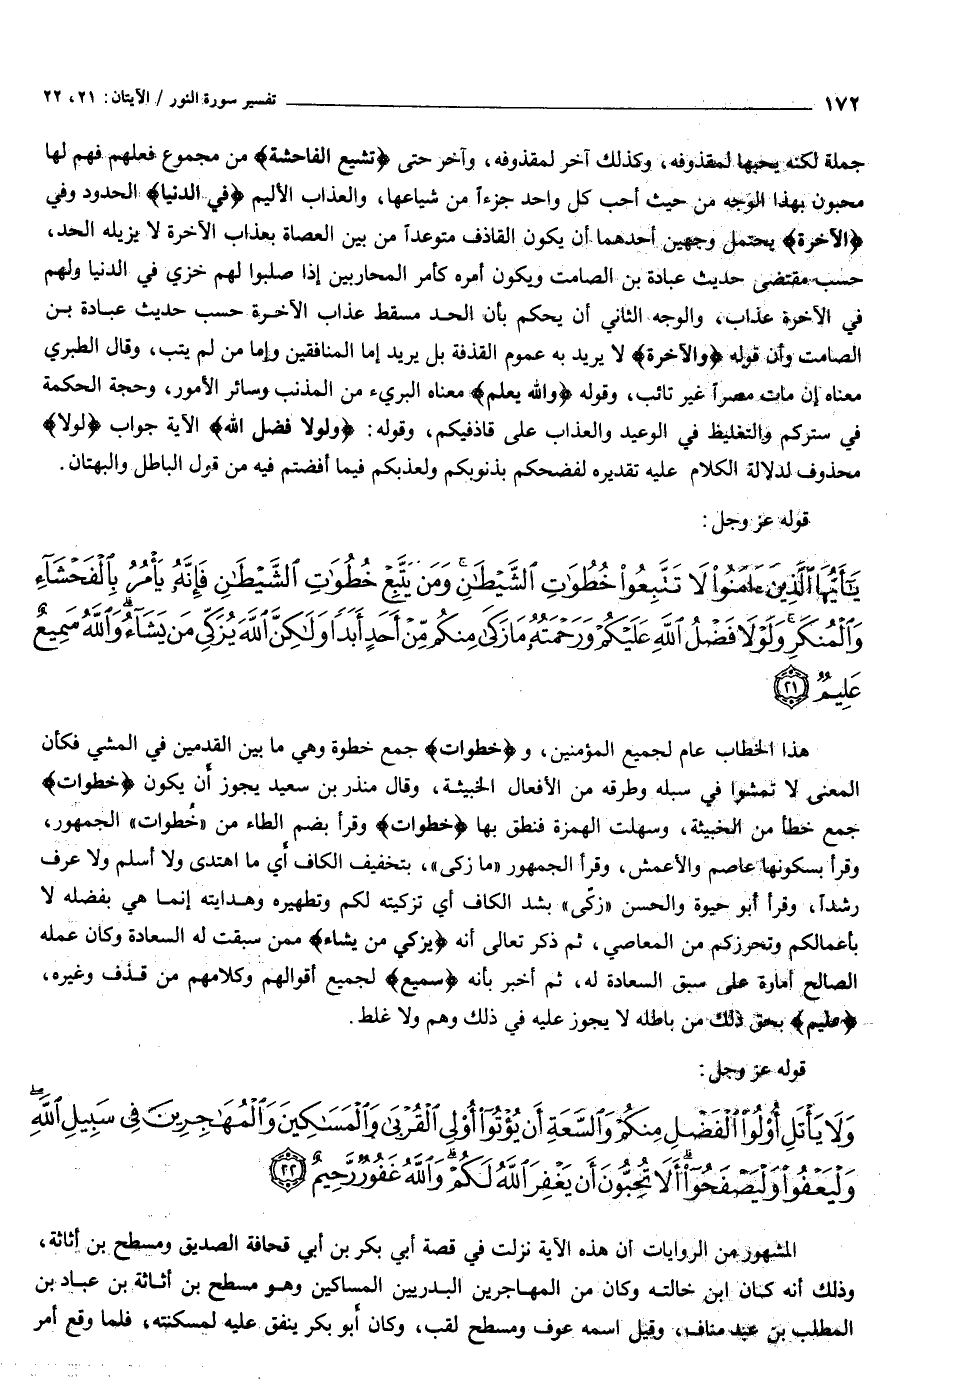 ١٧٢ تفسير سورة النور / الآيتان: ٢١، ٢٢
جملة لكنه يحبها لمقذوفه، وكذلك آخر لمقذوفه، وآخر حتى ﴿تشيع الفاحشة﴾ من مجموع فعلهم فهم لها
محبون بهذا الوجه من حيث أحب كل واحد جزءاً من شياعها، والعذاب الأليم ﴿في الدنيا﴾ الحدود وفي
﴿الآخرة﴾ يحتمل وجهين أحدهما أن يكون القاذف متوعداً من بين العصاة بعذاب الآخرة لا يزيله الحد،
حسب مقتضى حديث عبادة بن الصامت ويكون أمره كأمر المحاربين إذا صلبوا لهم خزي في الدنيا ولهم
في الآخرة عذاب، والوجه الثاني أن يحكم بأن الحد مسقط عذاب الآخرة حسب حديث عبادة بن
الصامت وأن قوله ﴿والآخرة﴾ لا يريد به عموم القذفة بل يريد إما المنافقين وإما من لم يتب، وقال الطبري
معناه إن مات مصراً غير تائب، وقوله ﴿والله يعلم﴾ معناه البريء من المذنب وسائر الأمور، وحجة الحكمة
في ستركم والتغليظ في الوعيد والعذاب على قاذفيكم، وقوله: ﴿ولولا فضل الله﴾ الآية جواب ﴿لولا﴾
محذوف لدلالة الكلام عليه تقديره لفضحكم بذنوبكم ولعذبكم فيما أفضتم فيه من قول الباطل والبهتان.
قوله عز وجل:
يَٰٓأَيُّهَا ٱلَّذِينَ ءَامَنُوا۟ لَا تَتَّبِعُوا۟ خُطُوَٰتِ ٱلشَّيْطَٰنِ ۚ وَمَن يَتَّبِعْ خُطُوَٰتِ ٱلشَّيْطَٰنِ فَإِنَّهُۥ يَأْمُرُ بِٱلْفَحْشَآءِ
وَٱلْمُنكَرِ ۚ وَلَوْلَا فَضْلُ ٱللَّهِ عَلَيْكُمْ وَرَحْمَتُهُۥ مَا زَكَىٰ مِنكُم مِّنْ أَحَدٍ أَبَدًا وَلَٰكِنَّ ٱللَّهَ يُزَكِّى مَن يَشَآءُ ۗ وَٱللَّهُ سَمِيعٌ
عَلِيمٌ ﴿٢١﴾
هذا الخطاب عام لجميع المؤمنين، و ﴿خطوات﴾ جمع خطوة وهي ما بين القدمين في المشي فكأن
المعنى لا تمشوا في سبله وطرقه من الأفعال الخبيثة، وقال منذر بن سعيد يجوز أن يكون ﴿خطوات﴾
جمع خطأ من الخبيثة، وسهلت الهمزة فنطق بها ﴿خطوات﴾ وقرأ بضم الطاء من «خُطوات» الجمهور،
وقرأ بسكونها عاصم والأعمش، وقرأ الجمهور «ما زكى»، بتخفيف الكاف أي ما اهتدى ولا أسلم ولا عرف
رشداً، وقرأ أبو حيوة والحسن «زكّى» بشد الكاف أي تزكيته لكم وتطهيره وهدايته إنما هي بفضله لا
بأعمالكم وتحرزكم من المعاصي، ثم ذكر تعالى أنه ﴿يزكي من يشاء﴾ ممن سبقت له السعادة وكان عمله
الصالح أمارة على سبق السعادة له، ثم أخبر بأنه ﴿سميع﴾ لجميع أقوالهم وكلامهم من قذف وغيره،
﴿عليم﴾ بحق ذلك من باطله لا يجوز عليه في ذلك وهم ولا غلط.
قوله عز وجل:
وَلَا يَأْتَلِ أُو۟لُوا۟ ٱلْفَضْلِ مِنكُمْ وَٱلسَّعَةِ أَن يُؤْتُوٓا۟ أُو۟لِى ٱلْقُرْبَىٰ وَٱلْمَسَٰكِينَ وَٱلْمُهَٰجِرِينَ فِى سَبِيلِ ٱللَّهِ ۖ
وَلْيَعْفُوا۟ وَلْيَصْفَحُوٓا۟ ۗ أَلَا تُحِبُّونَ أَن يَغْفِرَ ٱللَّهُ لَكُمْ ۗ وَٱللَّهُ غَفُورٌ رَّحِيمٌ ﴿٢٢﴾
المشهور من الروايات أن هذه الآية نزلت في قصة أبي بكر بن أبي قحافة الصديق ومسطح بن أثاثة،
وذلك أنه كان ابن خالته وكان من المهاجرين البدريين المساكين وهو مسطح بن أثاثة بن عباد بن
المطلب بن عبد مناف، وقيل اسمه عوف ومسطح لقب، وكان أبو بكر ينفق عليه لمسكنته، فلما وقع أمر